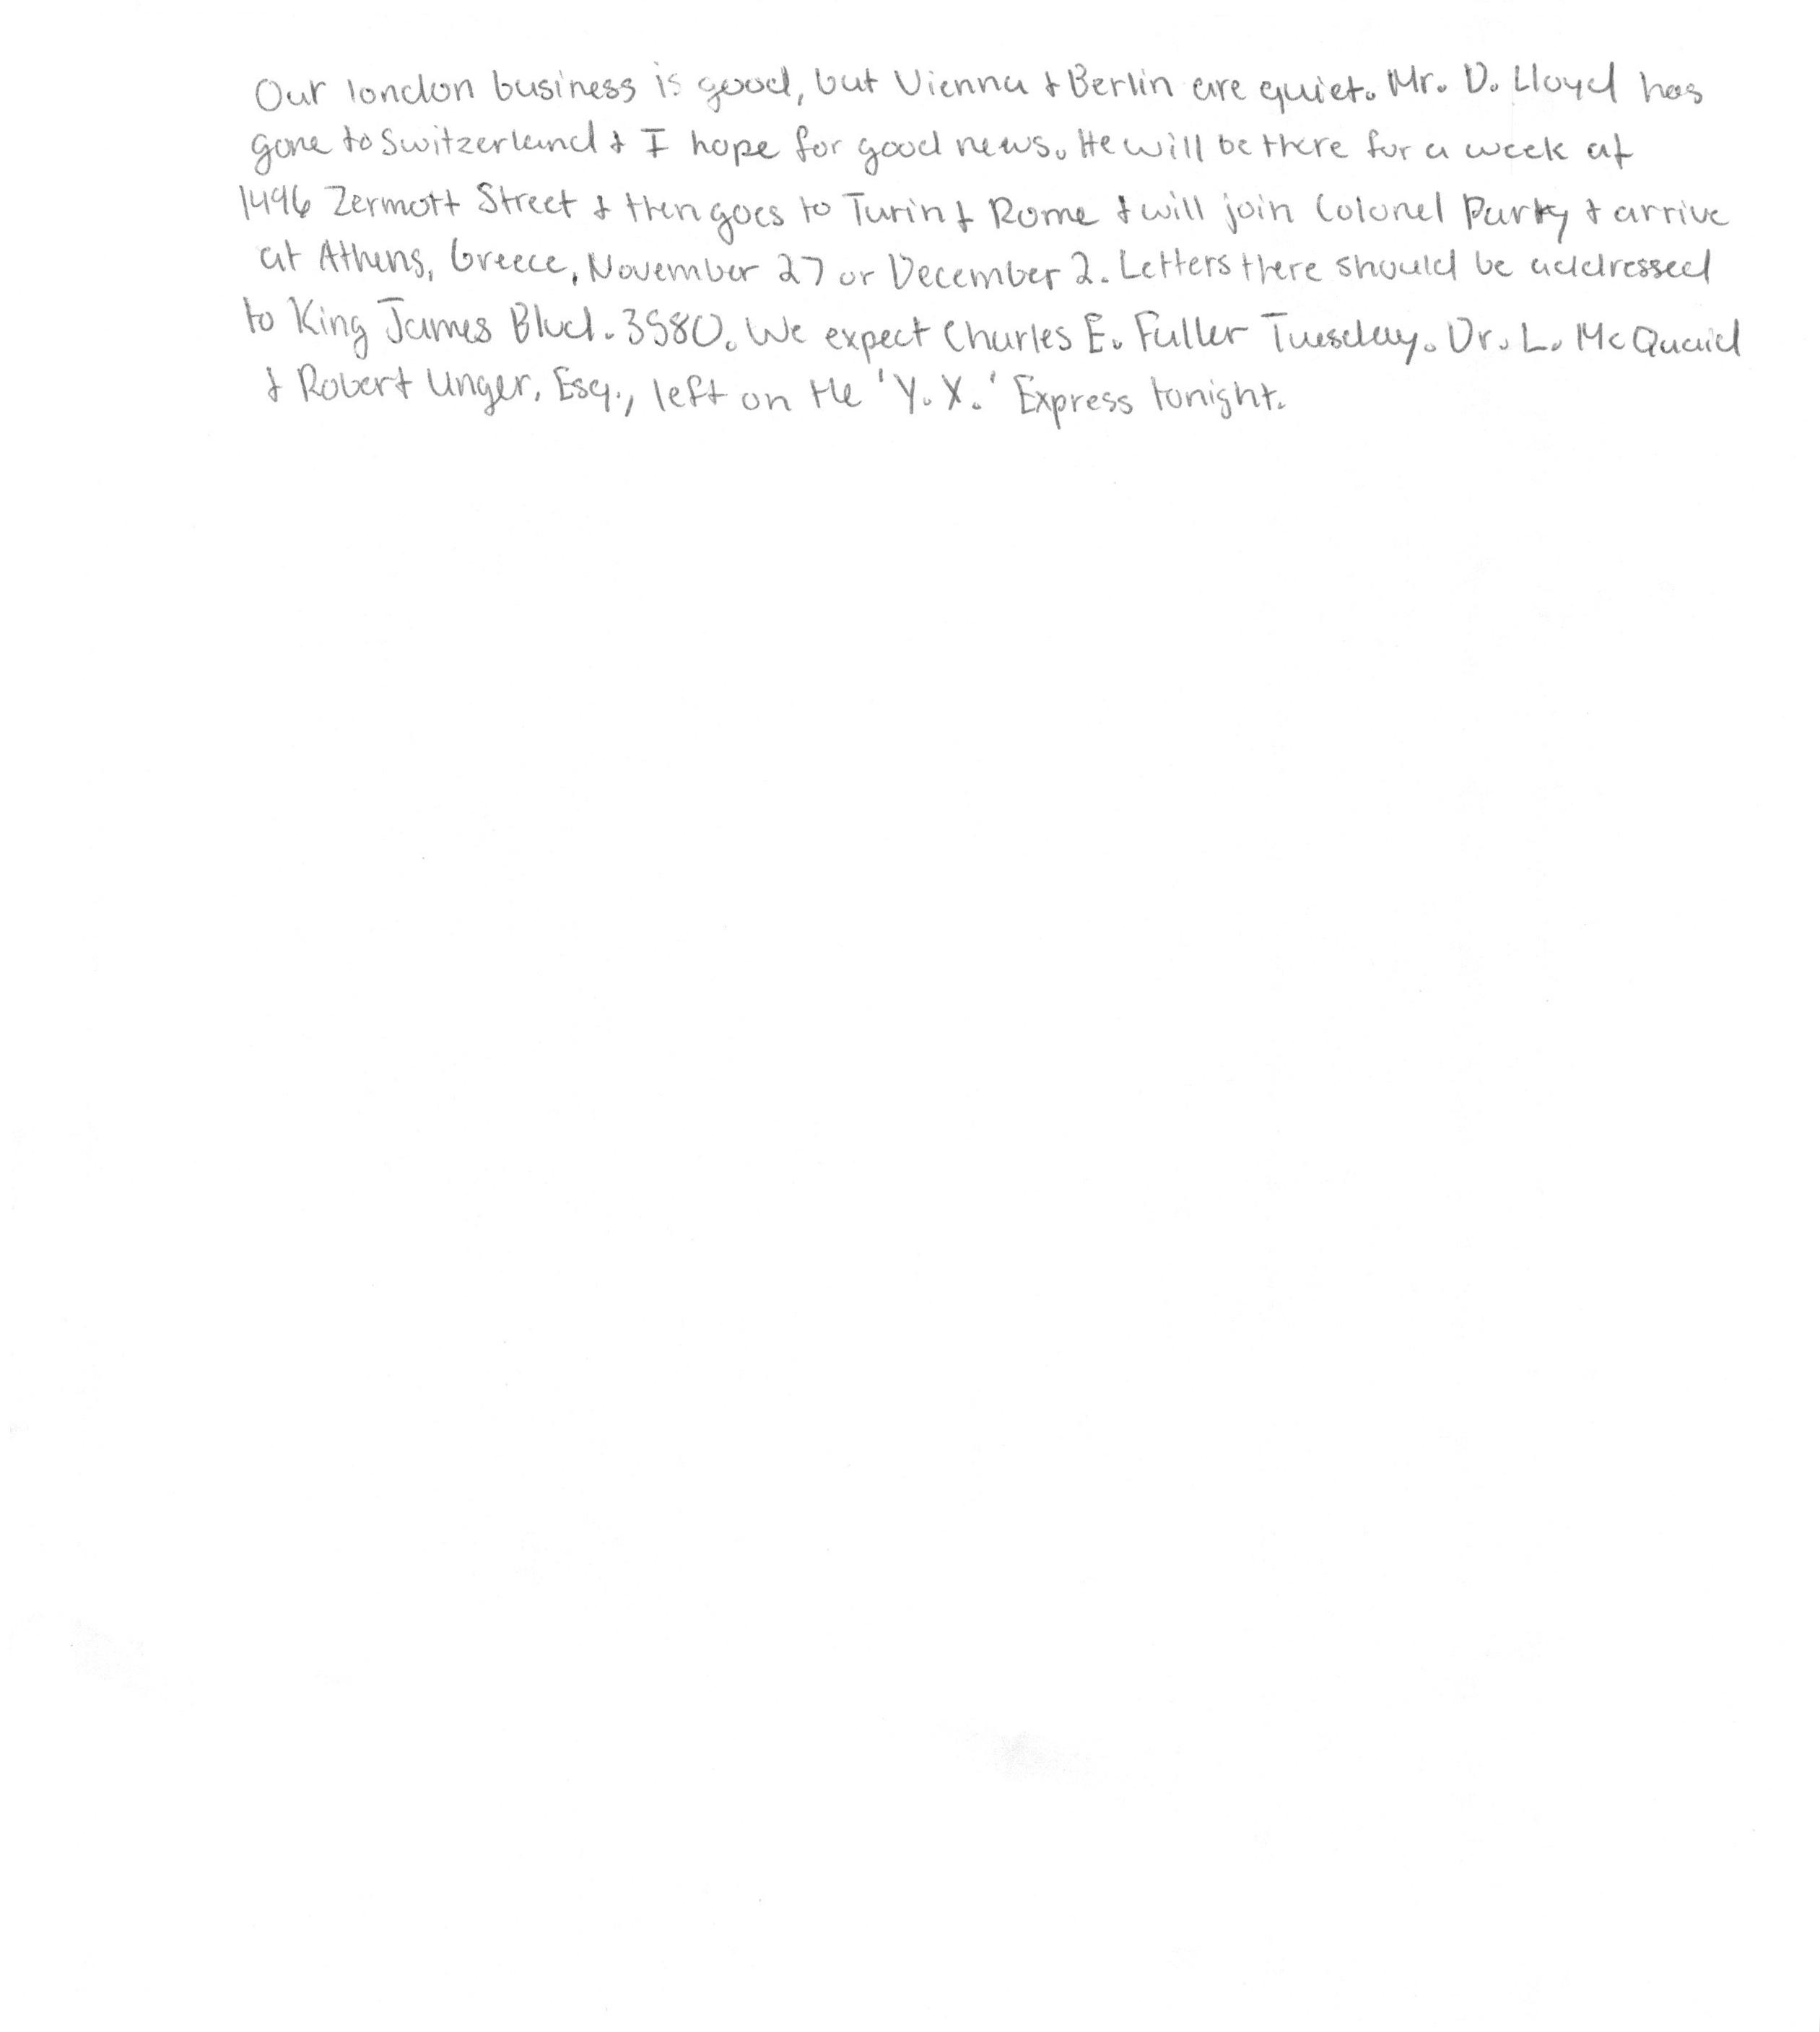 Our london business is good, but Vienna & Berlin are quiet. Mr. D. Lloyd has
gone to Switzerland & I hope for good news. He will be there for a week at
1496 Zermott Street & then goes to Turin & Rome & will join Colonel Parky & arrive
at Athens, Greece, November 27 or December 2. Letters there should be addressed
to King James Blvd. 3580. We expect Charles E. Fuller Tuesday. Dr. L. McQuaid
& Robert Unger, Esq., left on the 'Y.X.' Express tonight.